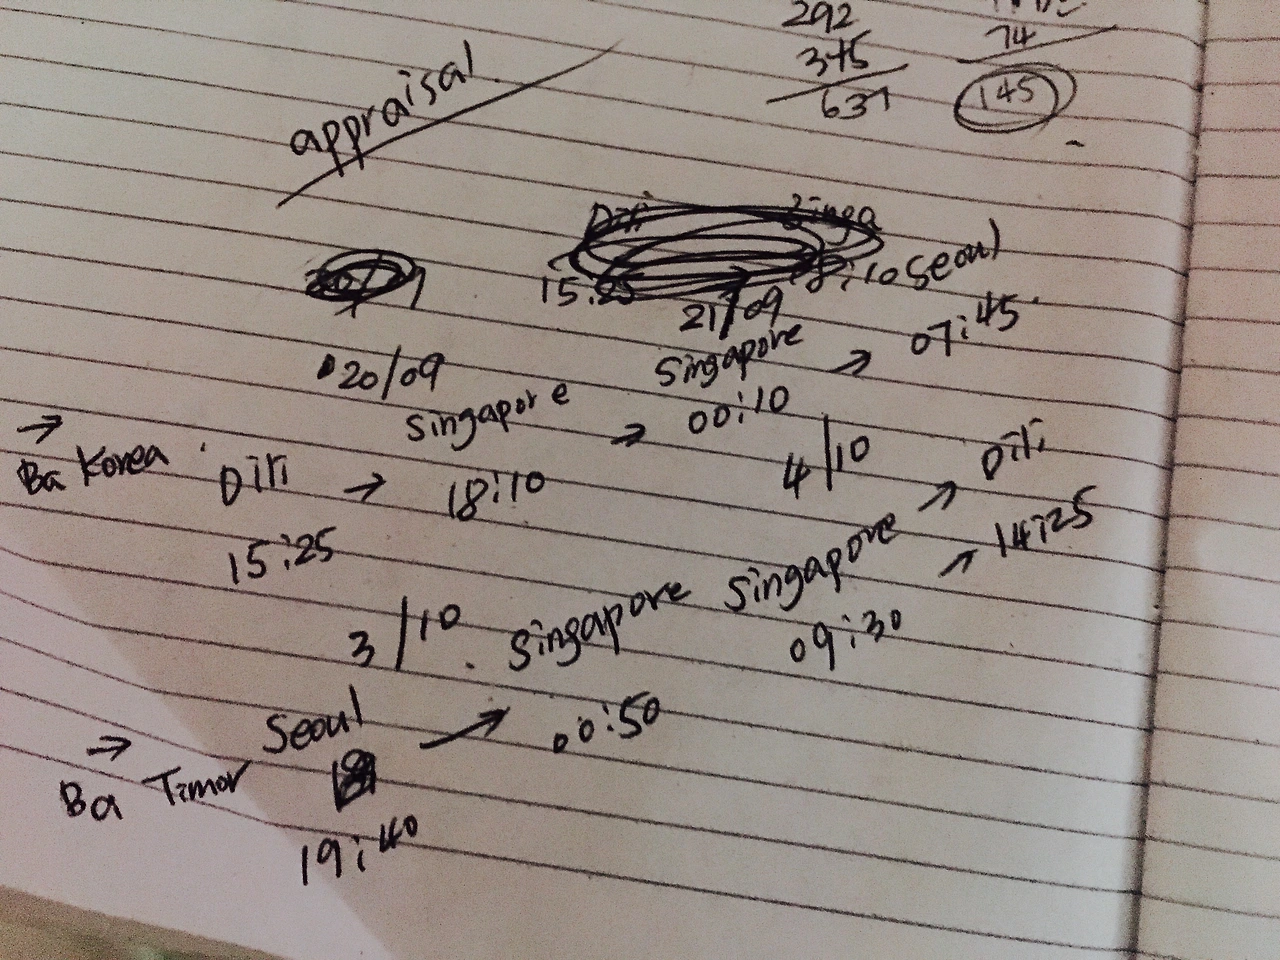 292
74
345
637
145
appraisal
Dili Singa
15:25 8:10 Seoul
21/09
Singapore → 07:45
20/09
Singapore → 00:10
→
Ba Korea Dili → 18:10
15:25
4/10
Singapore → Dili
09:30 → 14:25
3/10
Singapore
→
Ba Timor Seoul → 00:50
19:40